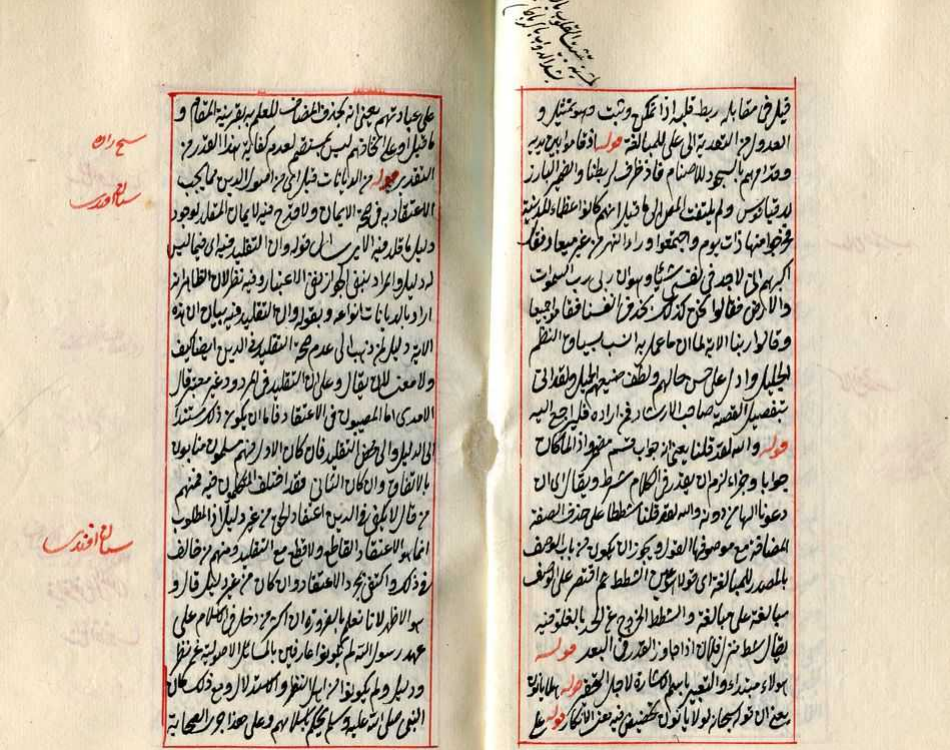 قيل في مقابله ربط قلبه اذا تمكن وثبت وهو تمثيل و
العدول من التعدية الى على للمبالغة قوله اذ قاموا بين يديه
بالسجود للاصنام فاذ ظرف لربطنا والضمير البارز
لدقيانوس ولم يلتفت المص الى ما قيل انهم كانوا عظماء المدينة
فخرجوا منها ذات يوم واجتمعوا وراءها من غير ميعاد فقال
اكبرهم اني لاجد في نفسي شيئا وهو ان ربي رب السموات
والارض فقالوا نحن كذلك نجد في انفسنا فقاموا جميعا
وقالوا ربنا الاية لما ان ما عمل به انسب بسياق النظم
الجليل وادل على حسن حالهم ولطف صنيعهم الجميل ولقد اتى
بتفصيل القصة صاحب الارشاد فمن اراده فليراجع اليه
قوله والله لقد قلنا يعني ان جواب قسم مضمر واذا لما كان
جوابا وجزاء لزم ان يقدر في الكلام شرط ويقال اي ان
دعونا الها من دونه والله لقد قلنا شططا على حذف الصفة
المضافة مع موصوفها القول ويجوز ان يكون من باب الوصف
بالمصدر للمبالغة اي قولا هو عين الشطط ثم اقتصر على الوصف
مبالغة على مبالغة والشطط الخروج عن الحد بالغلو فيه
يقال شط منزل فلان اذا جاوز القدر في البعد قوله
هؤلاء مبتداء والتعبير باسم الاشارة لاجل التحقير قوله هلا يأتون
يعني ان قوله سبحانه لولا يأتون تحضيض فيه معنى الانكار قوله على
على عبادتهم يعني انه بحذف المضاف للعلم به بقرينة المقام و
ما قيل او على اتخاذهم ليس بمنتظم لعدم كفاية هذا القدر من
التقدير قوله من الديانات قيل اي من امور الدين مما يجب
الاعتقاد به في صحة الايمان ولا قدح فيه لايمان المقلد لوجود
دليل ما قلد فيه
له دليل والمراد بنفي الجواز نفي الاعتبار وفيه نظر لان الظاهر انه
اراد بالديانات انواعه وبقوله وان التقليد فيه بيان ان هذه
الاية دليل لمن ذهب الى عدم صحة التقليد في الدين ايضا كيف
ولا معنى لان يقال وعلى ان التقليد في المردود غير معتبر قال
الامدي اما المصيبون في الاعتقاد فاما ان يكون ذلك مستندا
الى الدليل والى محض التقليد فان كان الاول فهم مسلمون مثابون
بالاتفاق وان كان الثاني فقد اختلف المتكلمون فيه فمنهم
من قال لا يكفي في الدين اعتقاد الحق من غير دليل اذ المطلوب
انما هو الاعتقاد القاطع ولا قطع مع التقليد ومنهم من خالف
في ذلك واكتفى بمجرد الاعتقاد وان كان من غير دليل قال و
هو الاظهر لانا نعلم بالضرورة ان اكثر من دخل في الاسلام على
عهد رسول الله لم يكونوا عارفين بالمسائل الاصولية عن نظر
ودليل ولم يكونوا من اهل النظر والاستدلال ومع ذلك كان
النبي صلى الله عليه وسلم يحكم باسلامهم وعلى هذا جرى الصحابة
سنان افندى
سنان افندى